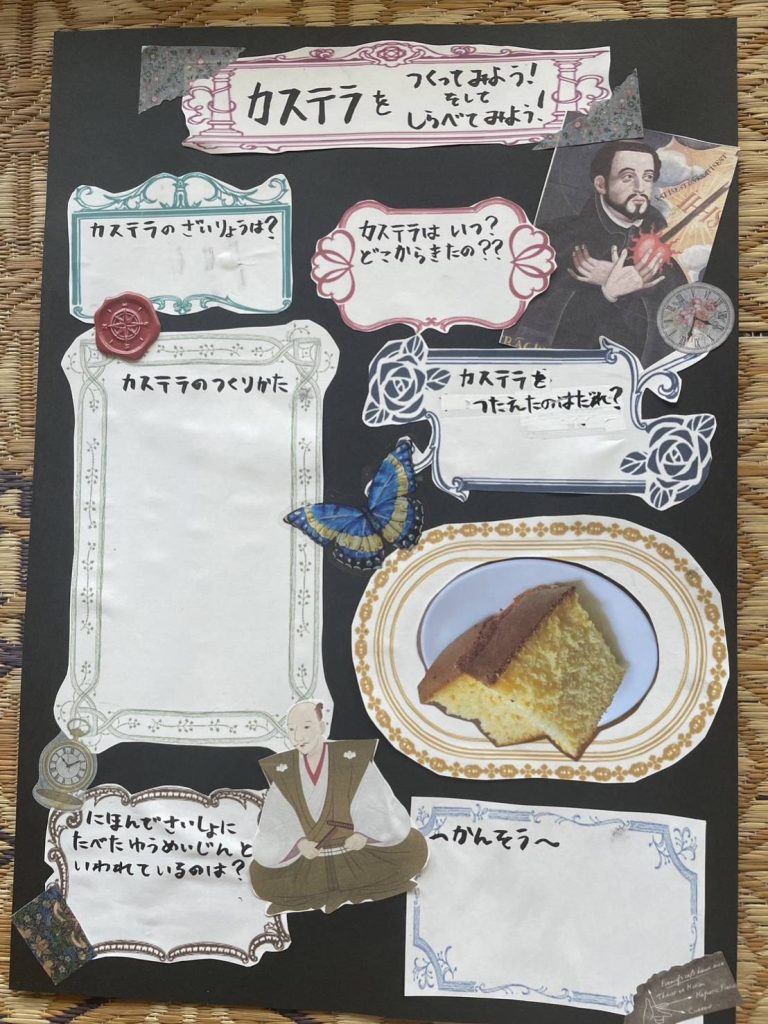 カステラを
つくってみよう!
そして
しらべてみよう!
カステラの ざいりょうは?
カステラは いつ?
どこからきたの??
カステラのつくりかた
カステラを
つたえたのはだれ?
にほんでさいしょに
たべたゆうめいじんと
いわれているのは?
〜かんそう〜